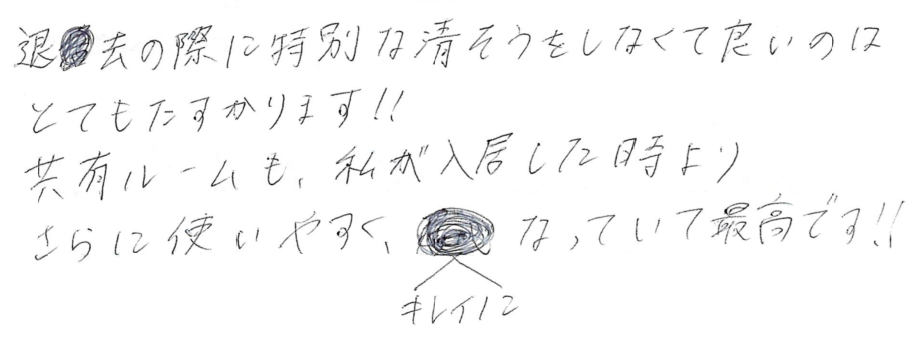 退去の際に特別な清そうをしなくて良いのは
とてもたすかります!!
共有ルームも、私が入居した時より
さらに使いやすく、キレイになっていて最高です!!